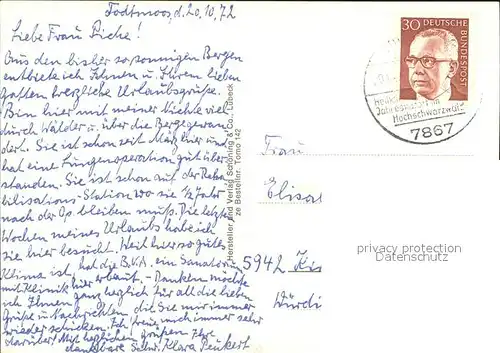 Todtmoos, d. 20.10.72
Liebe Frau Piche!
Aus den bisher so sonnigen Bergen
entbiete ich Ihnen u. Ihrem lieben
Gatten herzliche Urlaubsgrüße.
Bin hier mit meiner Nichte viel
durch Wälder u. über die Berge gewan
dert. Sie ist schon seit März hier und
hat eine Lungenoperation gut über
standen. Sie ist schon auf der Reha
bilisations-Station wo sie 1/2 Jahr
nach der Op. bleiben muß. Die letzten
Wochen meines Urlaubs habe ich
sie hier besucht. Weil hier so gutes
Klima ist, hat die B.V.A. ein Sanatorium
mit Klinik hier erbaut. - Danken möchte
ich Ihnen ganz herzlich für all die lieben
Grüße u. Nachrichten die Sie mir immer
wieder schicken. Ich freue mich immer sehr
darüber! Mit herzlichen Grüßen Ihre
dankbare Schw. Klara Peukert
Hersteller und Verlag Schöning & Co., Lübeck
Bestellnr. Todmo 142
30 DEUTSCHE
BUNDESPOST
Hochschwarzwald
7867
Frau
5942
copyright protection
www.oldthing.de